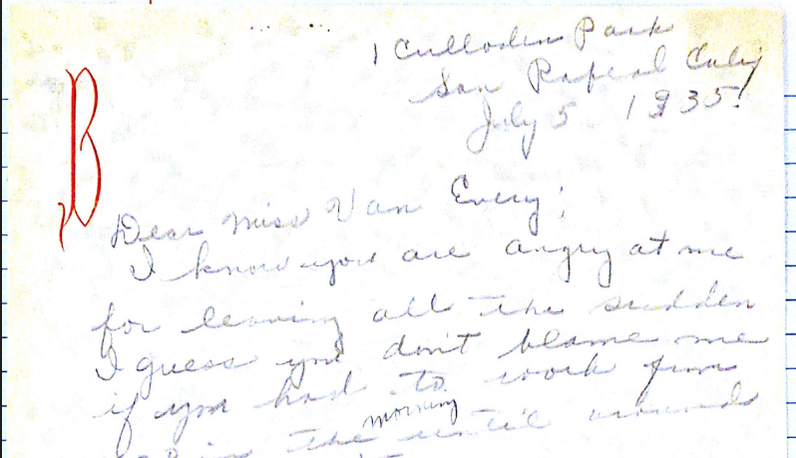 B
1 Culloden Park
San Rafeal Calif
July 5 1935.
Dear Miss Van Every;
I know you are angry at me
for leaving all the sudden
I guess you don't blame me
if you had to work from
morning
in the until around